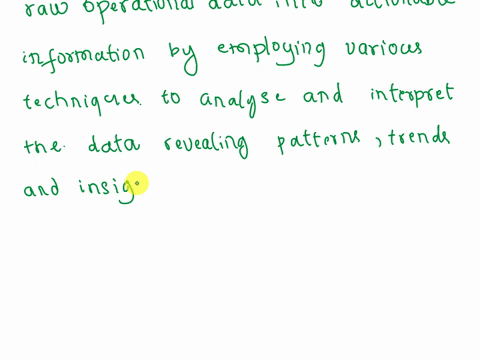 raw operational data into actionable
information by employing various
techniques to analyse and interpret
the data revealing patterns, trends
and insig